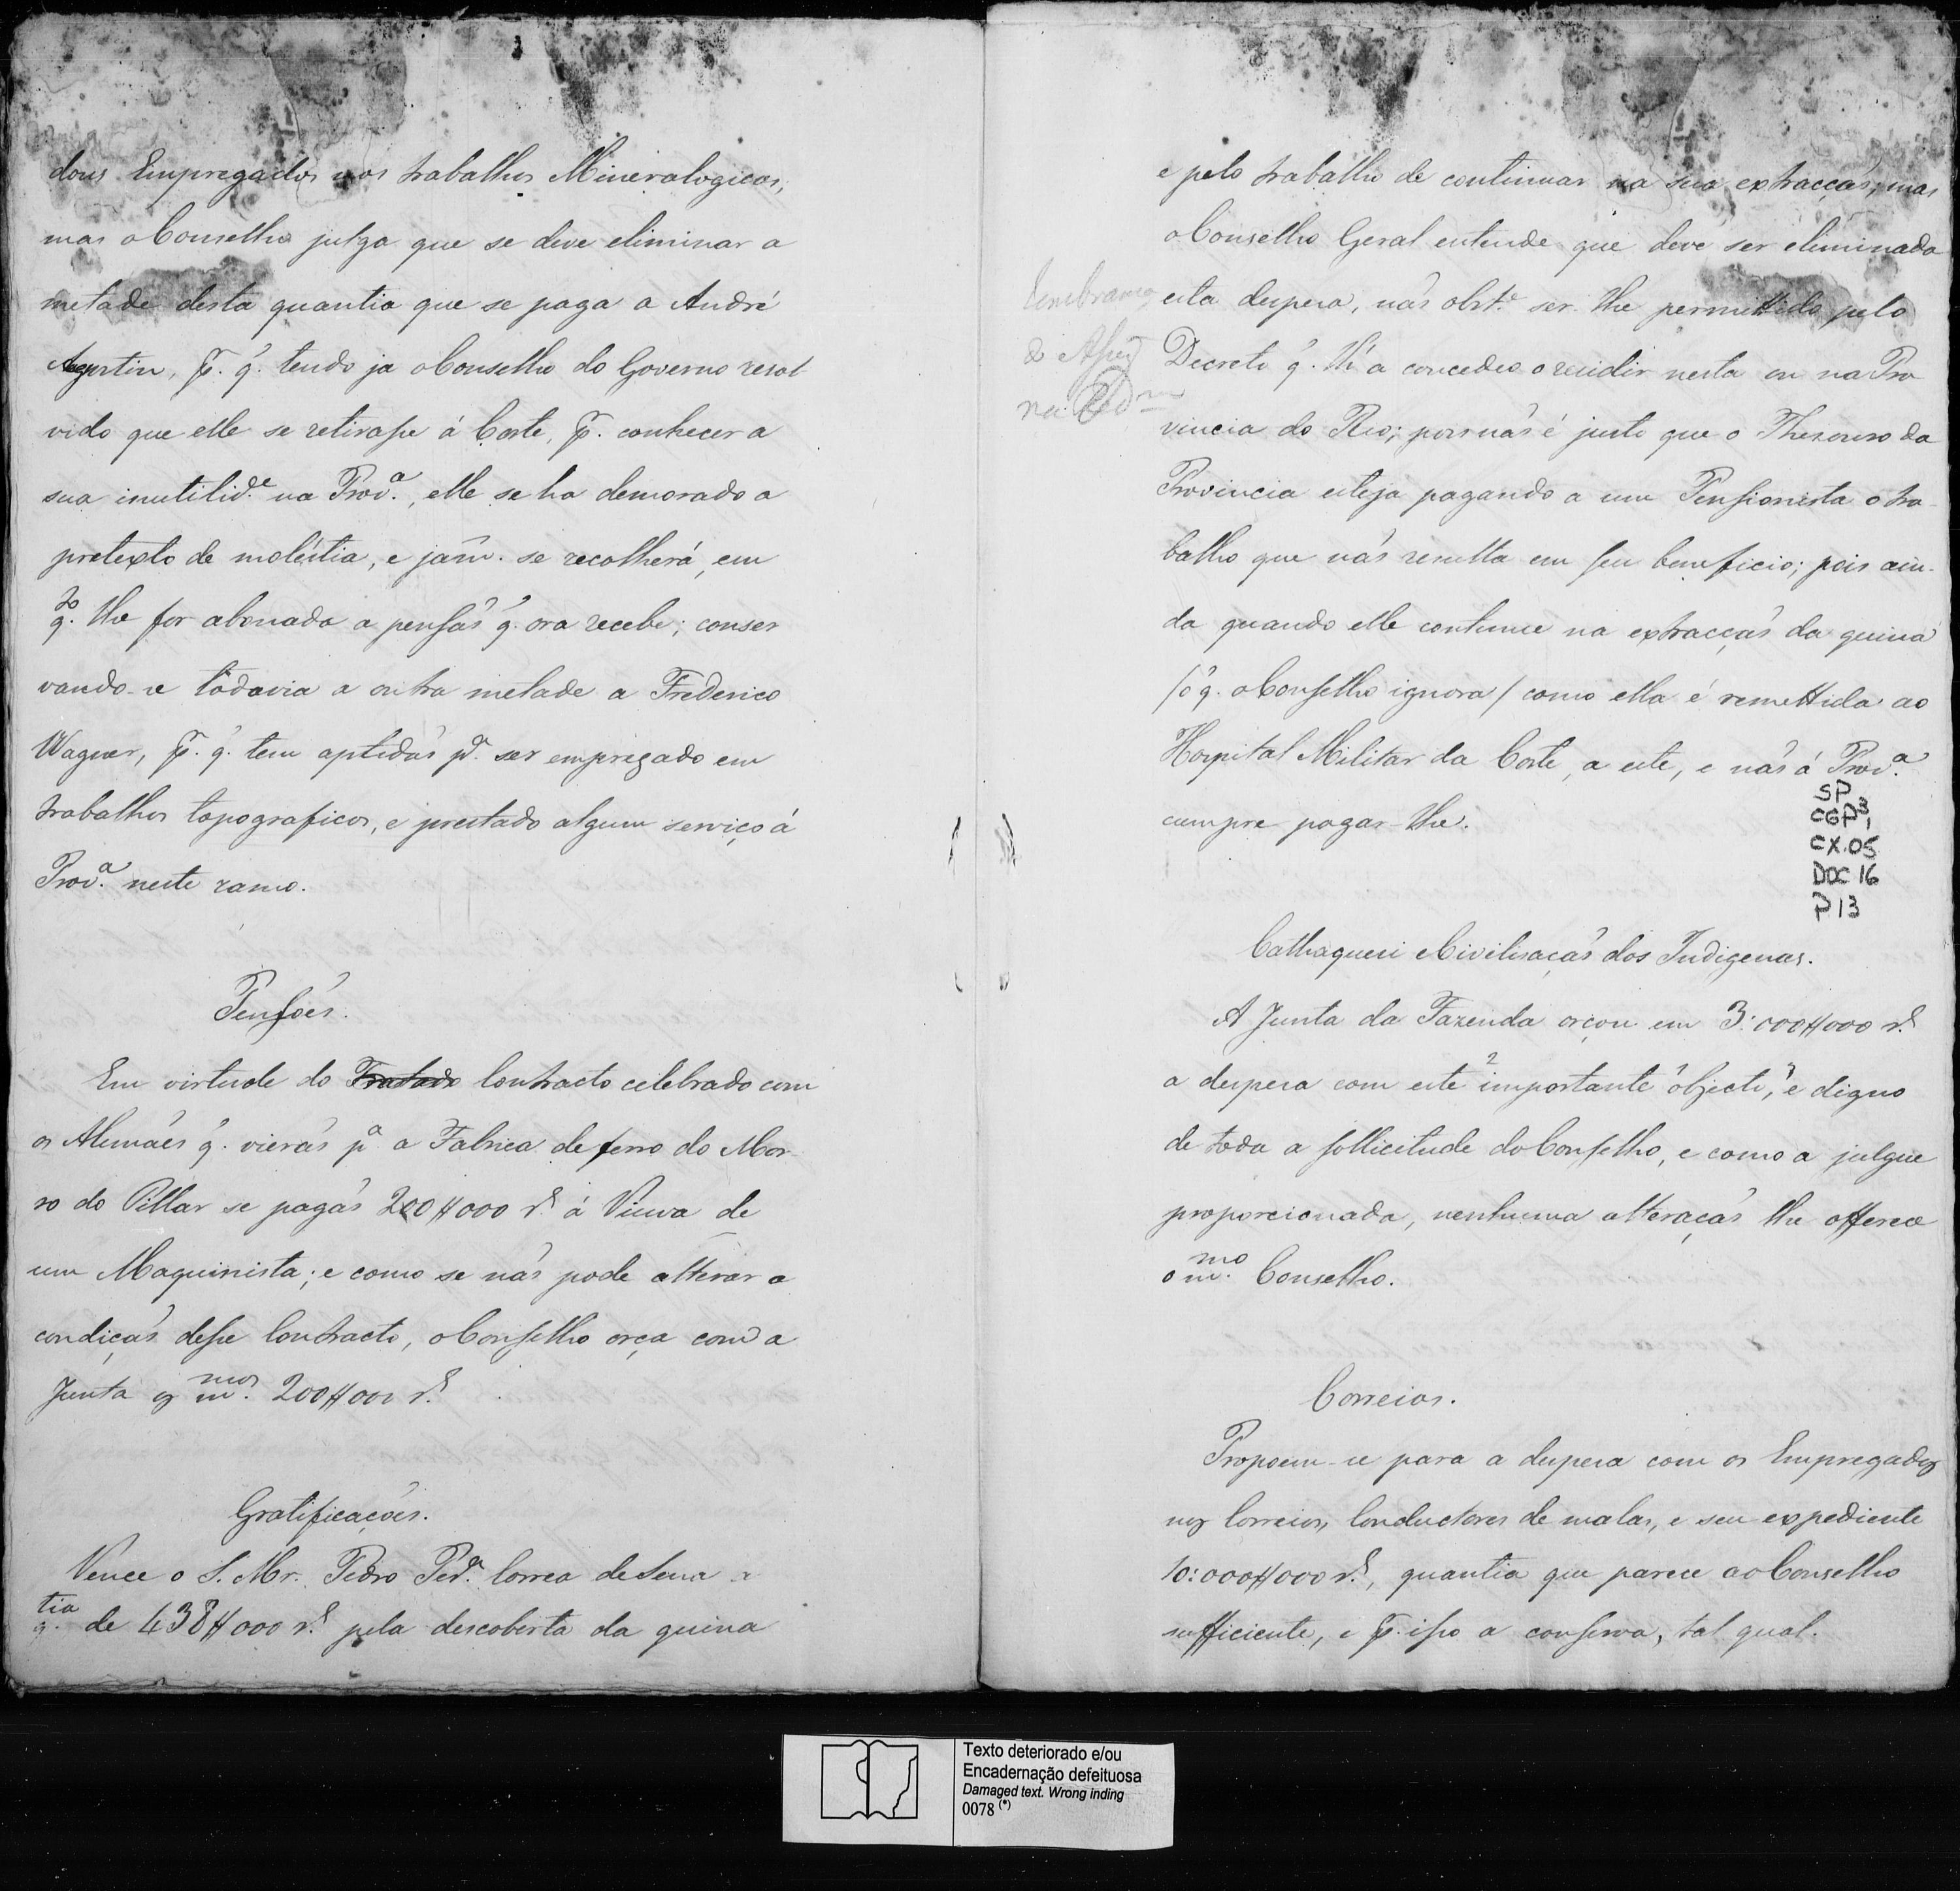 dous Empregados nos trabalhos Mineralogicos,
mas o Conselho julga que se deve eliminar a
metade desta quantia que se paga a André
Agostin, p. q. tendo ja o Conselho do Governo resol
vido que elle se retirasse á Corte, p. conhecer a
sua inutilid.e na Prov.a, elle se ha demorado a
pretexto de moléstia, e jam. se recolherá, em
q.to lhe for abonada a pensão q. ora recebe; conser
vando-se tódavia a outra metade a Frederico
Wagner, p. q. tem aptidão p.a ser empregado em
trabalhos topograficos, e prestado algum serviço á
Prov.a neste ramo.
Pensões.
Em virtude do Tratado Contracto celebrado com
os Alemães q. vierão p.a a Fabrica de ferro do Mor-
ro do Pillar se pagão 200$000 r.s á Viuva de
um Maquinista; e como se não pode alterar a
condição desse Contracto, o Conselho orça com a
Junta os m.mos 200$000 r.s
Gratificações.
Vence o S. Mr. Pedro Per.a Correa de Sena a
q.tia de 438$000 r.s pela descoberta da quina
e pelo trabalho de continuar na sua extracção; mas
o Conselho Geral entende que deve ser eliminada
esta despesa, não obst.e ser-lhe permittido pelo
Decreto q. lh'a concedeo o residir nesta ou na Pro
vincia do Rio; pois não é justo que o Thesouro da
Provincia esteja pagando a um Pensionista o tra-
balho que não resulta em seu beneficio; pois ain-
da quando elle continue na extracção da quina
/o q. o Conselho ignora/ como ella é remettida ao
Hospital Militar da Corte, a este, e não á Prov.a
cumpre pagar-lhe.
SP
CGP3,
CX.05
DOC 16
P13
Cathaquesi e Civilisação dos Indigenas.
A Junta da Fazenda orçou em 3:000$000 r.s
a despesa com este 2 importante objecto, e digno
de toda a sollicitude do Conselho, e como a julgue
proporcionada, nenhuma alteração lhe offerece
o m.mo Conselho.
Correios.
Propoem-se para a despesa com os Empregados
nos Correios, Conductores de malas, e seu expediente
10:000$000 r.s, quantia que parece ao Conselho
sufficiente, e p. isso a conserva, tal qual.
Texto deteriorado e/ou
Encadernação defeituosa
Damaged text. Wrong inding
0078 (*)